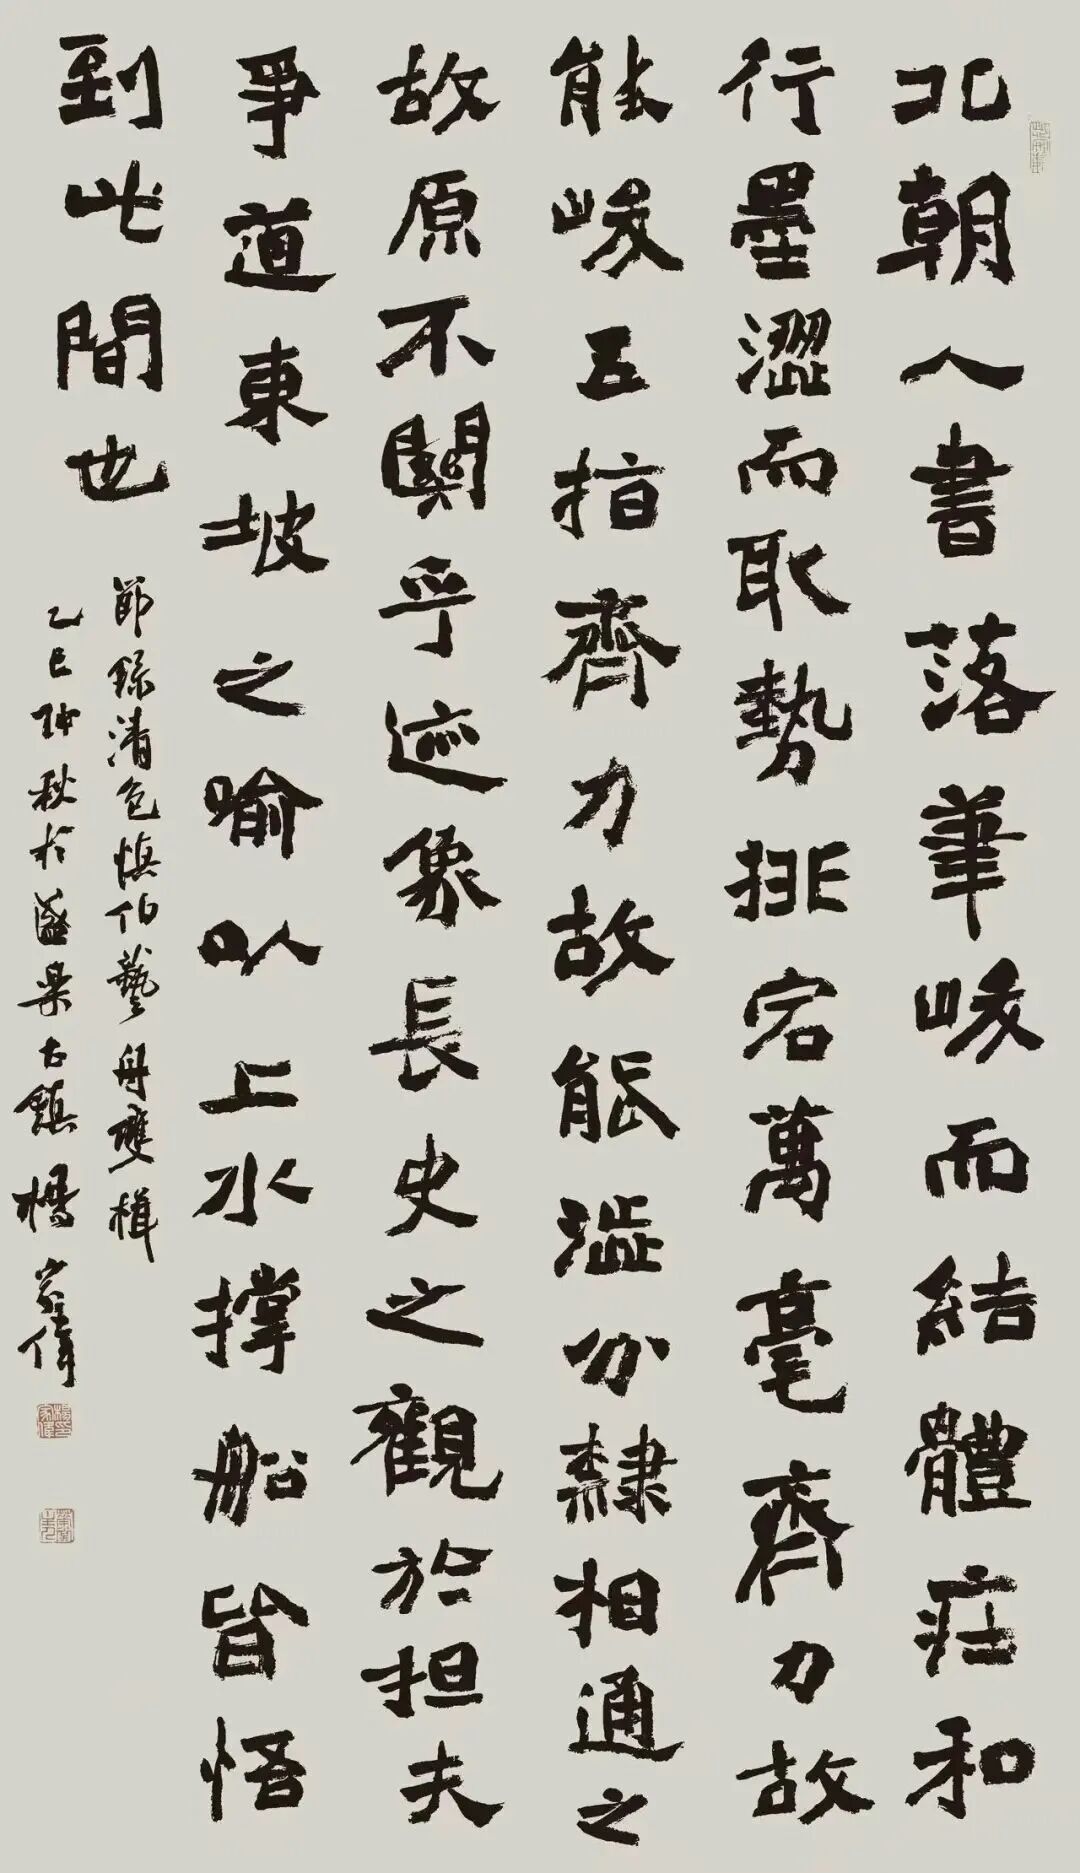 北朝人書落筆峻而結體莊和
行墨澀而取勢排宕萬毫齊力故
能峻五指齊力故能澁分隸相通之
故原不關乎迹象長史之觀於担夫
爭道東坡之喻以上水撑船皆悟
到此間也
節録清包慎伯藝舟雙楫
乙巳仲秋於盛樂古鎮楊家偉